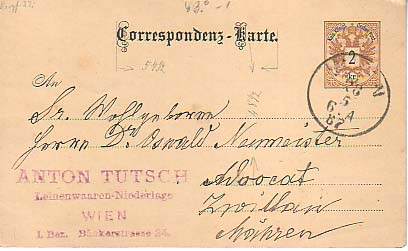 48.-1
Correspondenz-Karte.
2
KR.
WIEN
6 5
87
5 1/2
An
Sr. Wohlgeboren
Herrn Dr Oswald Neumeister
Advocat
Zwittau
Mähren
ANTON TUTSCH
Leinenwaaren-Niederlage
WIEN
I. Bez. Bäckerstrasse 24.